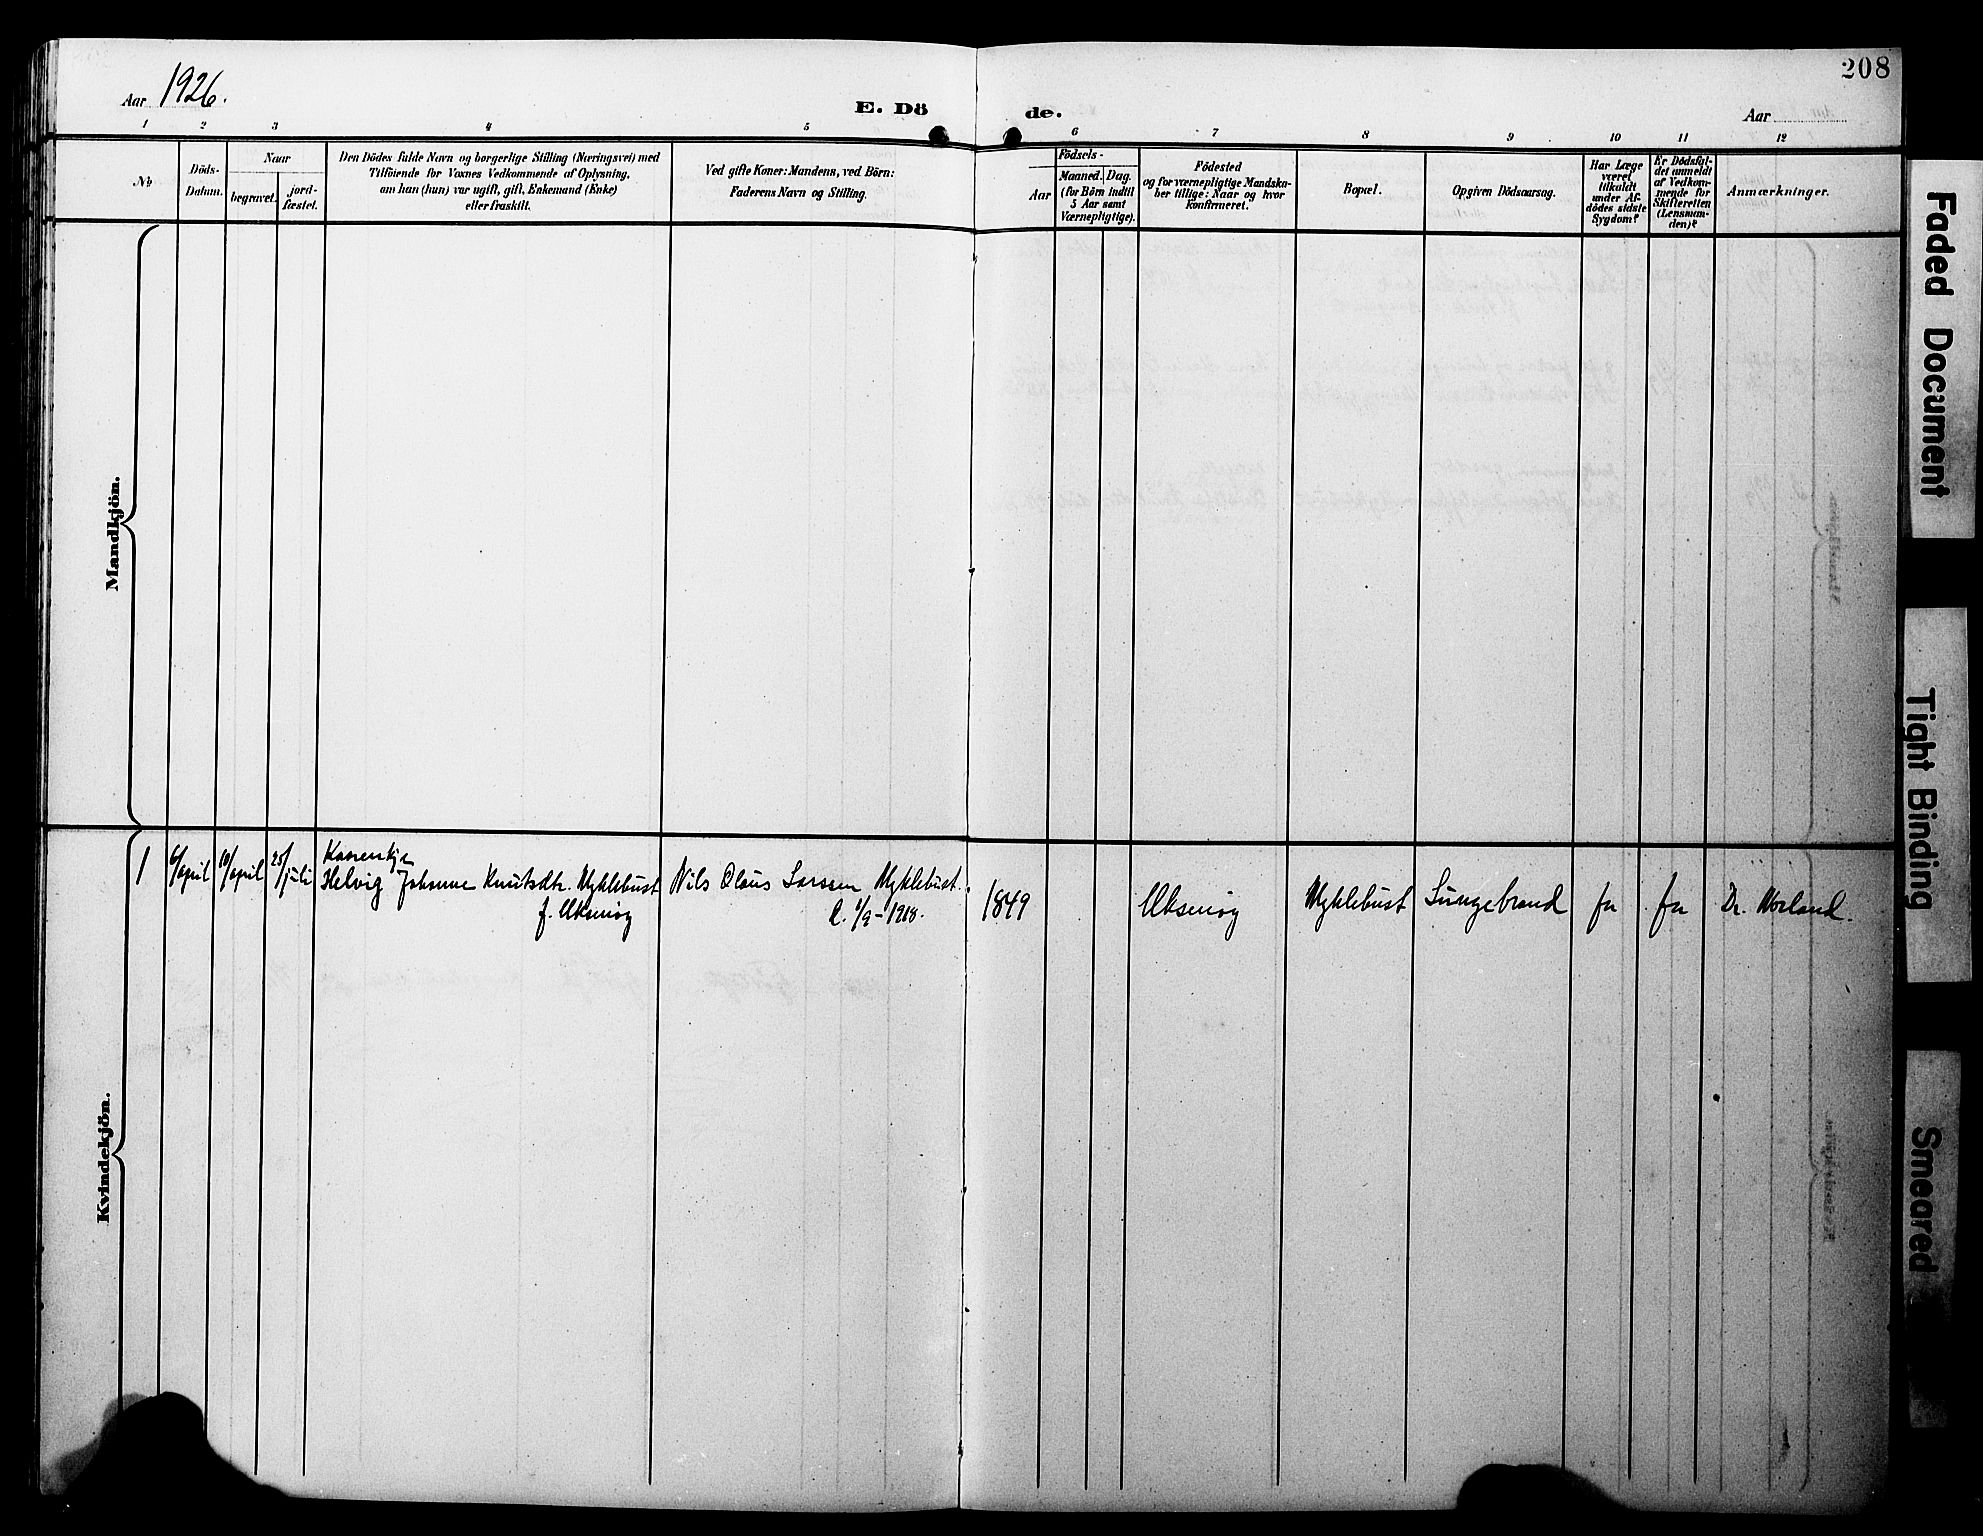 208
Aar 1926.
E. Dö de.
Aar
1 2 3 4 5 6 7 8 9 10 11 12
No
Döds-
Datum.
Naar
begravet.
jord-
fæstet.
Den Dödes fulde Navn og borgerlige Stilling (Næringsvei) med
Tilföiende for Voxnes Vedkommende af Oplysning,
om han (hun) var ugift, gift, Enkemand (Enke)
eller fraskilt.
Ved gifte Koner: Mandens, ved Börn:
Faderens Navn og Stilling.
Födsels-
Aar
Maaned. Dag.
(for Börn indtil
5 Aar samt
Værnepligtige).
Födested
og for værnepligtige Mandskа-
ber tillige: Naar og hvor
konfirmeret.
Bopæl.
Opgiven Dödsaarsag.
Har Læge
været
tilkaldt
under Af-
dödes sidste
Sygdom?
Er Dödsfal-
det anmeldt
af Vedkom-
mende for
Skifteretten
(Lensman-
den)?
Anmærkninger.
Mandkjön.
1 6/april 10/april 25/juli
Helvig Johanne Knutsdtr. Myklebust
f. Uksnöy
Nils Olaus Larssen Myklebust.
1/9-1918.
1849
Uksnöy
Myklebust
Lungebrand
ja
ja
Dr.
Kvindekjön.
Faded Document
Tight Binding
Smeared